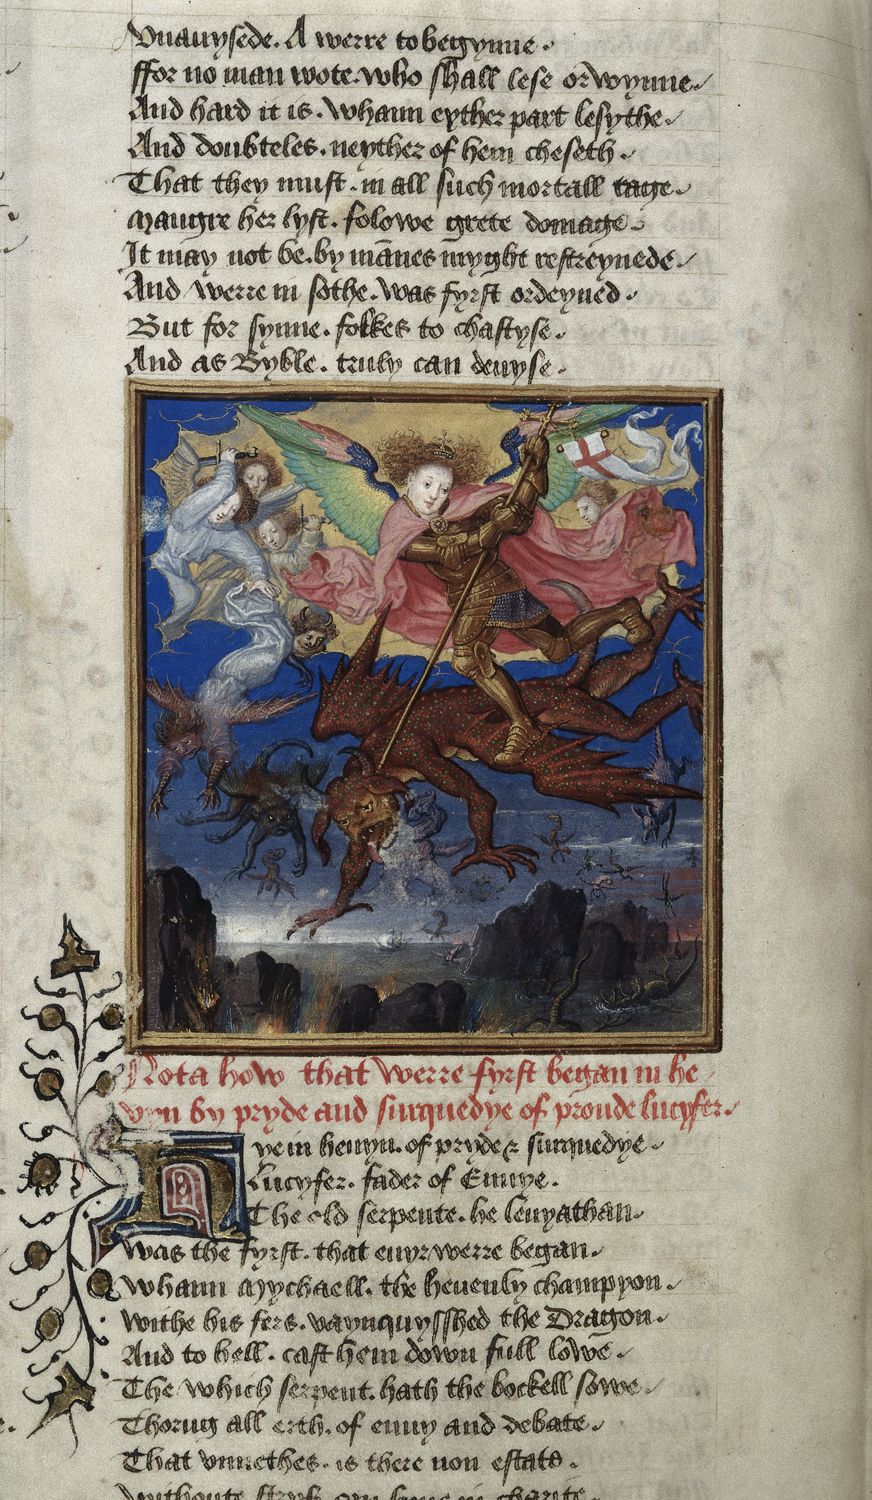 Vnauysede. A werre to begynne.
ffor no man wote. who shall lese or wynne
And hard it is. whann eyther part lesythe
And doubteles. neyther of hem cheseth.
That they must. in all such mortall rage
Maugre her lyst. folowe grete domage
It may not be. by mānes myght restreynede.
And werre in sothe. was fyrst ordeyned.
But for synne. folkes to chastyse.
And as Byble. truly can deuyse.
Nota how that werre fyrst began in he
vyn by pryde and surquedye of proude lucyfer.
Hye in heuyn. of pryde & surquedye
Lucyfer. fader of Enuye.
The old serpente. he leuyathan
was the fyrst. that euyr werre began.
whann Mychaell. the heuenly champyon
withe his feres. vaynquysshed the Dragon
And to hell. cast hem down full lowe
The which serpent. hath the cockell sowe
Thorug all erth. of enuy and debate
That vnnethes. is there non estate
withoute stryf. can lyue in charite.